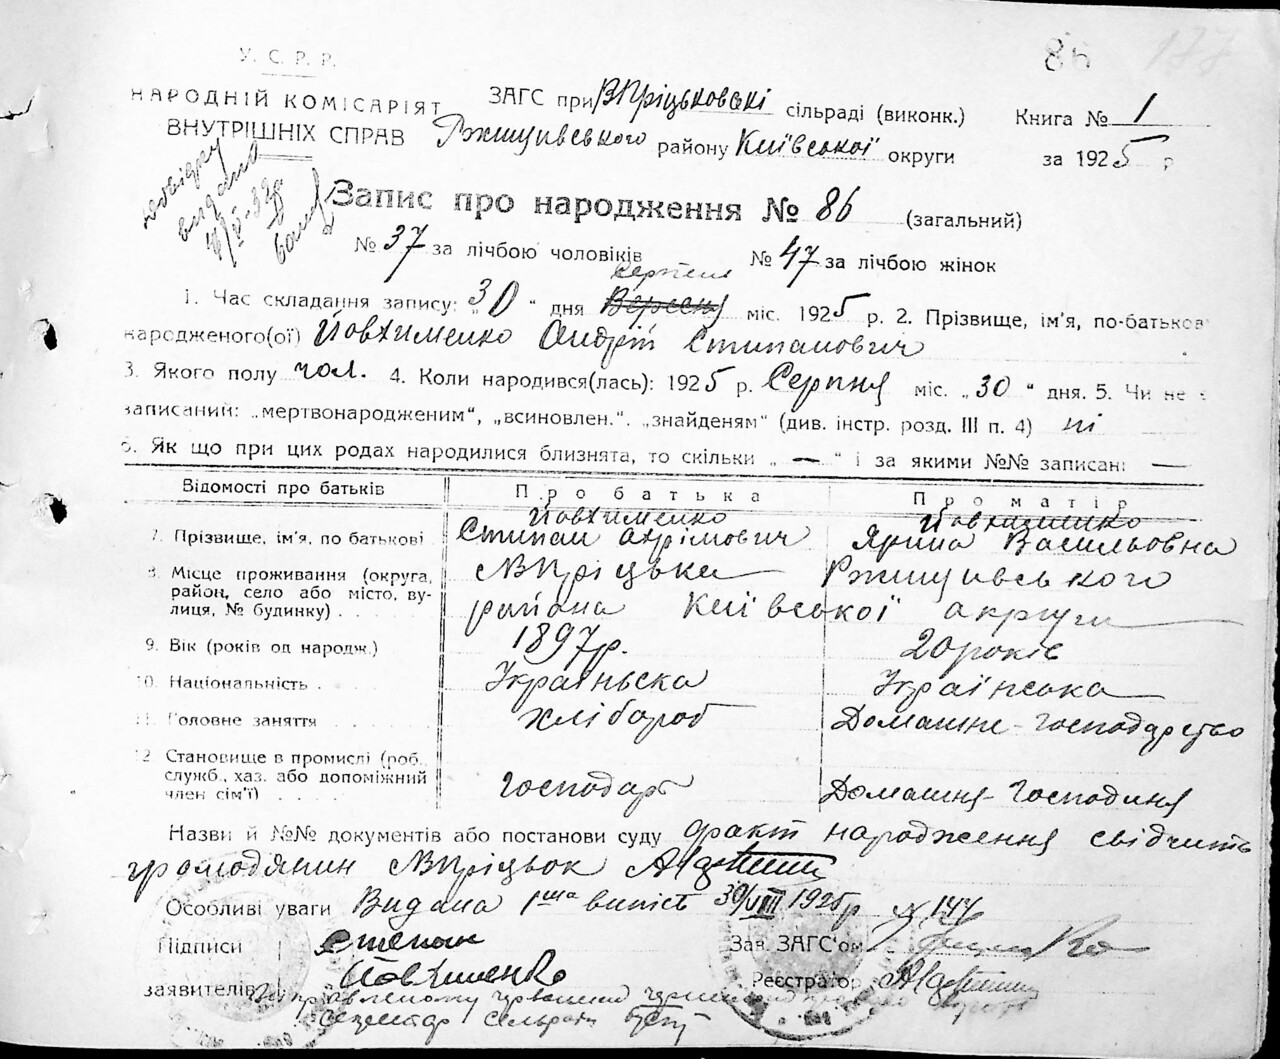 86 177
У. С. Р. Р.
НАРОДНІЙ КОМІСАРІЯТ
ВНУТРІШНІХ СПРАВ
ЗАГС при ВПріцьковські сільраді (виконк.) Книга № 1
Ржищівського району Київської округи за 1925 р
видано
Запис про народження № 86 (загальний)
№ 37 за лічбою чоловіків № 47 за лічбою жінок
серпень
1. Час складання запису: „30" дня Вересня міс. 1925 р. 2. Прізвище, ім'я, по-батькові
народженого(ої) Йовхименко Андрій Степанович
3. Якого полу чол. 4. Коли народився(лась): 1925 р. Серпня міс. „30" дня. 5. Чи не є
записаний: „мертвонародженим", „всиновлен.". „знайденям" (див. інстр. розд. III п. 4) ні
6. Як що при цих родах народилися близнята, то скільки „—" і за якими №№ записані —
Відомості про батьків Про батька Про матір
Йовхименко Йовхименко
7. Прізвище, ім'я, по батькові Степан Охрімович Ярина Васильовна
8. Місце проживання (округа, район, село або місто, вулиця, № будинку) . . . ВПріцьки Ржищівського
района Київської округи
9. Вік (років од народж.) 1897р. 20 років
10. Національність . Україньска Українська
11. Головне заняття . . . . хлібароб Домашне-господарство
12 Становище в промислі (роб., служб., хаз. або допоміжний член сім'ї) . . . . господарь Домашня-господиня
Назви й №№ документів або постанови суду факт народження свідчить
громодянин ВПріцьок
Особливі уваги Видана 1ша випісь 30/VIII 1925р № 177
Підписи Степан Зав. ЗАГС'ом
заявителів Йовхименко Реєстратор
секретар сельради